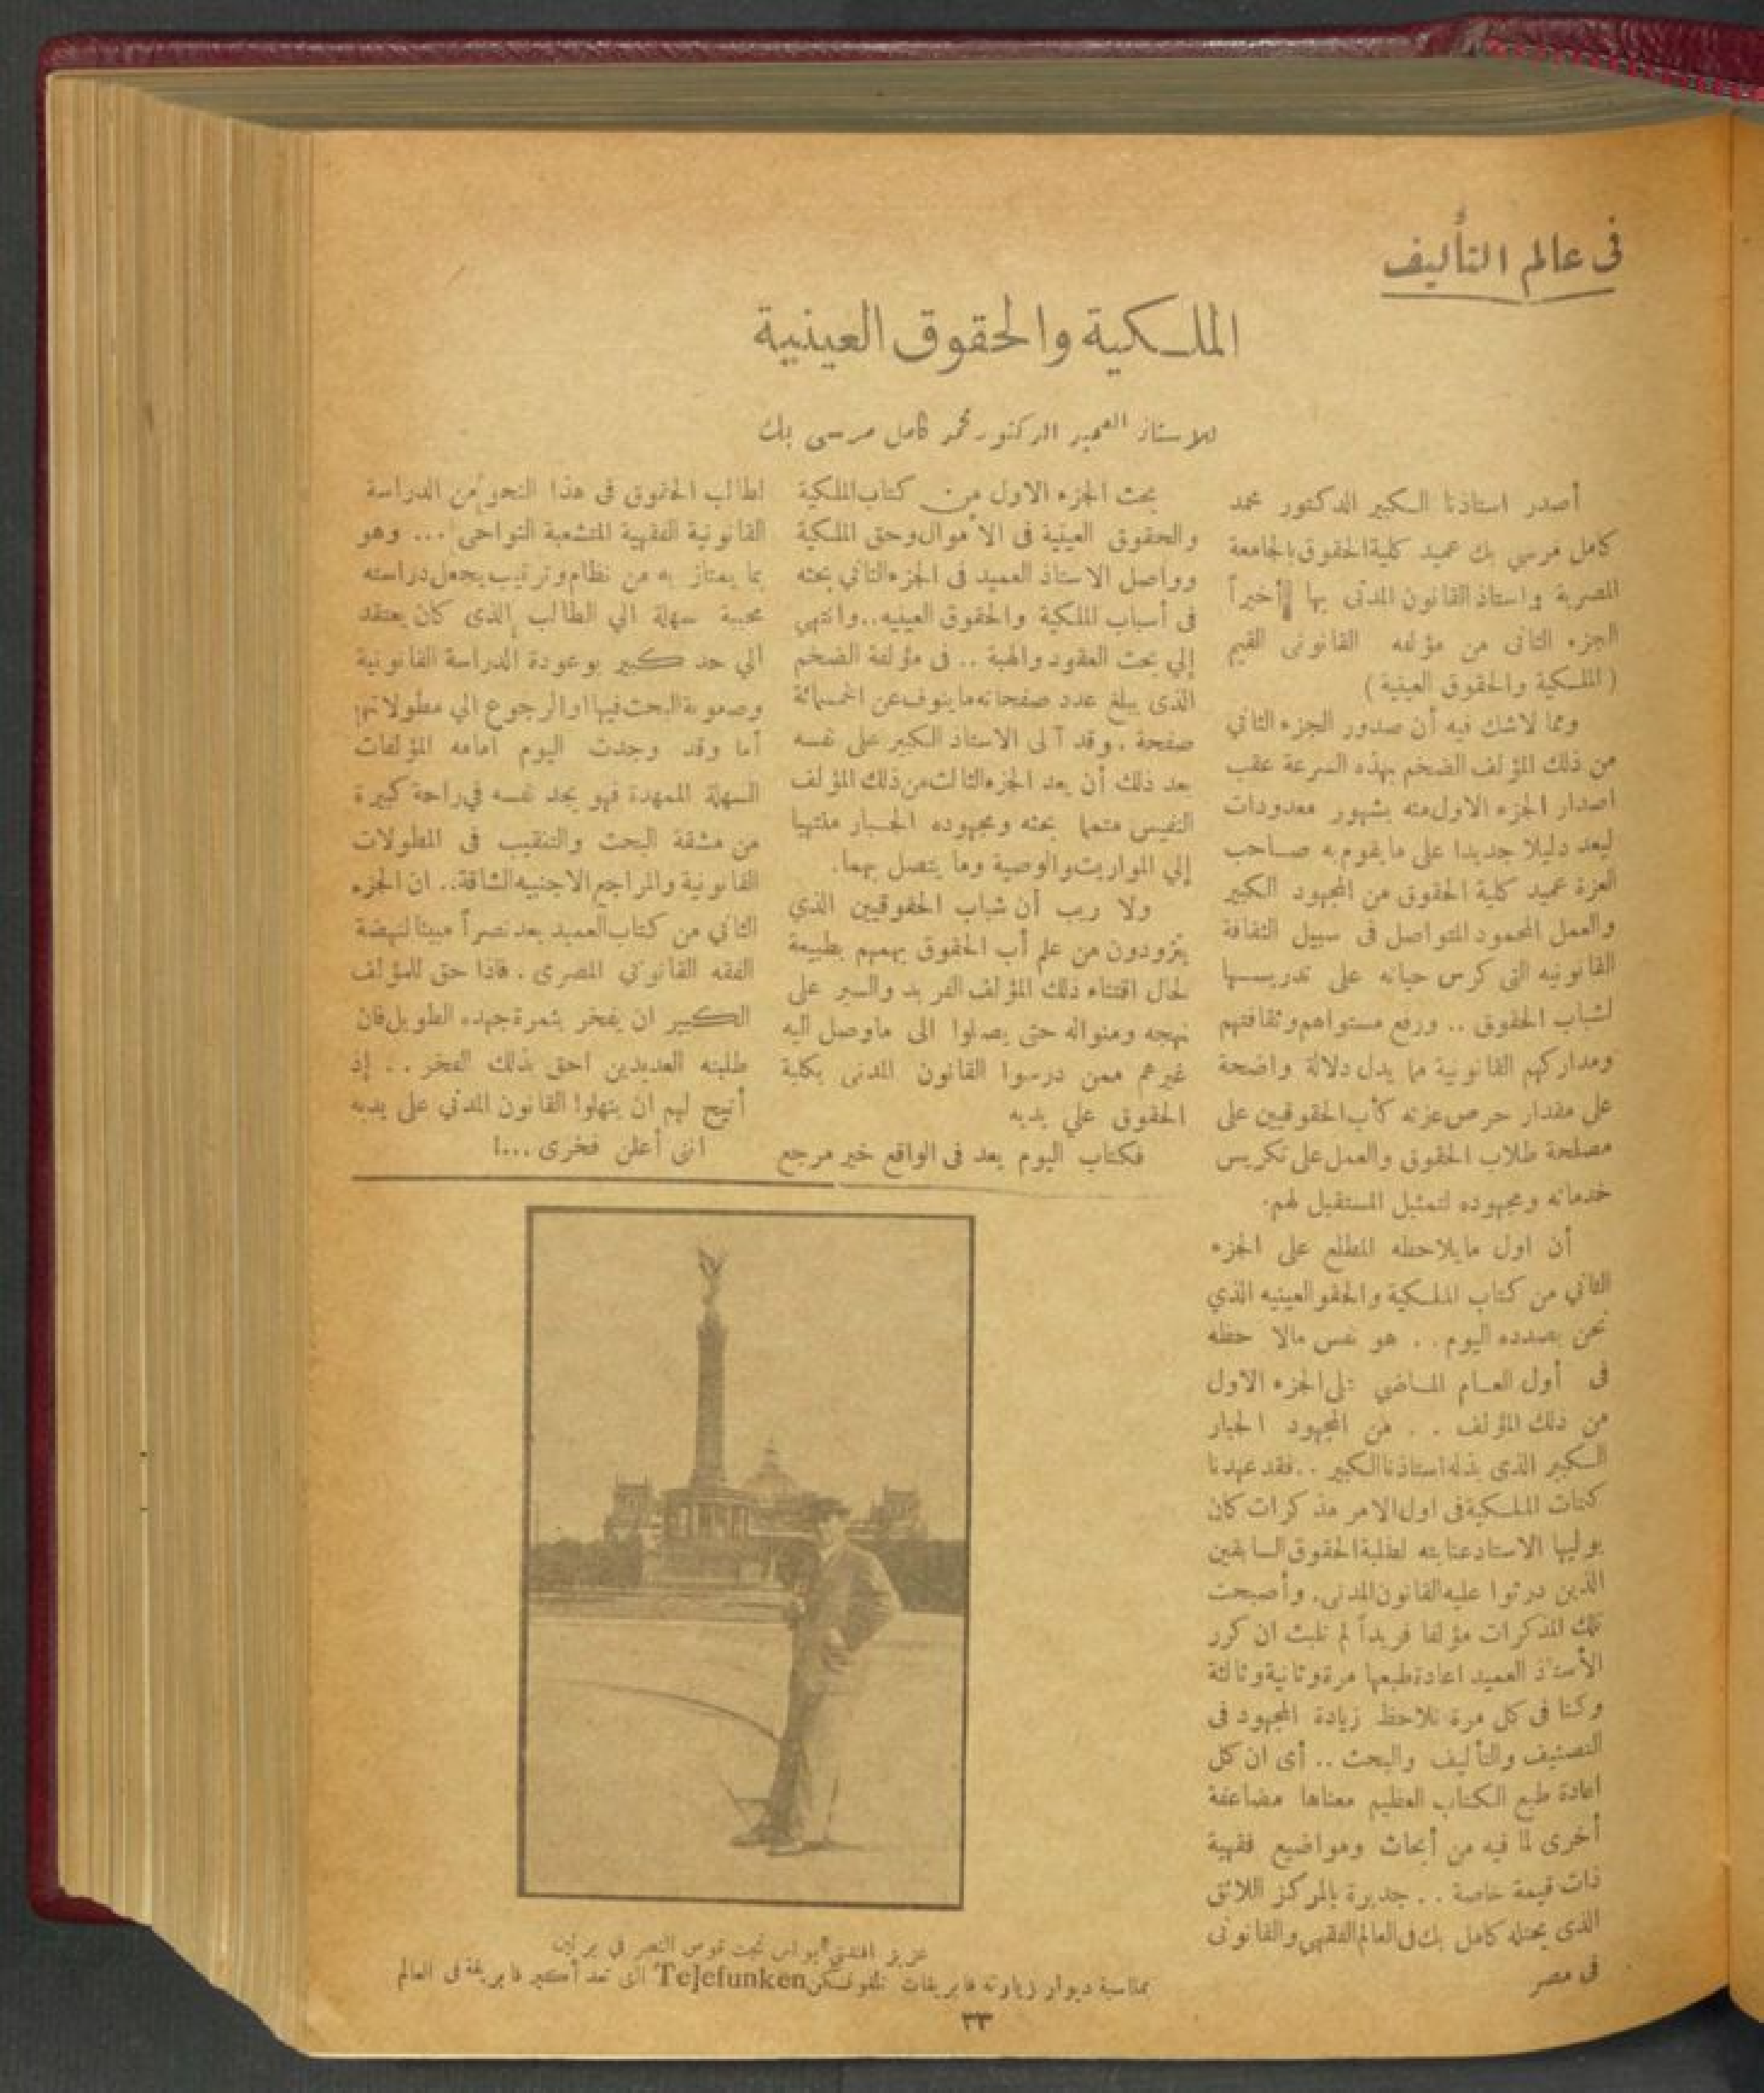 فى عالم التأليف
الملكية والحقوق العينية
للاستاذ العميد الدكتور محمد كامل مرسى بك
أصدر استاذنا الكبير الدكتور محمد
كامل مرسي بك عميد كلية الحقوق بالجامعة
المصرية واستاذ القانون المدنى بها أخيراً
الجزء الثانى من مؤلفه القانونى القيم
(الملكية والحقوق العينية)
ومما لاشك فيه أن صدور الجزء الثاني
من ذلك المؤلف الضخم بهذه السرعة عقب
اصدار الجزء الاول منه بشهور معدودات
ليعد دليلا جديدا على ما يقوم به صاحب
العزة عميد كلية الحقوق من المجهود الكبير
والعمل المحمود المتواصل فى سبيل الثقافة
القانونيه التى كرس حياته على تدريسها
لشباب الحقوق .. ورفع مستواهم وثقافتهم
ومداركهم القانونية مما يدل دلالة واضحة
على مقدار حرص عزته كأب الحقوقيين على
مصلحة طلاب الحقوق والعمل على تكريس
خدماته ومجهوده لتمثيل المستقبل لهم.
أن اول مايلاحظه المطلع على الجزء
الثاني من كتاب الملكية والحقو العينيه الذي
نحن بصدده اليوم . . هو نفس مالا حظه
فى أول العام الماضي على الجزء الاول
من ذلك المؤلف . . من المجهود الجبار
الكبير الذى بذله استاذنا الكبير .. فقد عهدنا
كتات الملكية فى اول الامر مذكرات كان
يوليها الاستاد عنايته لطلبة الحقوق السابقين
الذين درثوا عليه القانون المدنى. وأصبحت
تلك المذكرات مؤلفا فريداً لم تلبث ان كرر
الأستاذ العميد اعادة طبعها مرة وثانية وثالثة
وكنا فى كل مرة نلاحظ زيادة المجهود فى
التصنيف والتأليف والبحث .. أى ان كل
اعادة طبع الكتاب العظيم معناها مضاعفة
أخرى لما فيه من أبحاث ومواضيع فقهية
ذات قيمة خاصة . . جديرة بالمركز اللائق
الذى يحتله كامل بك فى العالم الفقهي والقانونى
فى مصر
بحث الجزء الاول من كتاب الملكية
والحقوق العينية فى الاموال وحق الملكية
وواصل الاستاذ العميد فى الجزء الثاني بحثه
فى أسباب الملكية والحقوق العينيه.. وانتهي
إلي بحث العقود والهبة .. فى مؤلفة الضخم
الذى يبلغ عدد صفحاته ماينوف عن الخمسمائة
صفحة . وقد آلى الاستاذ الكبير على نفسه
بعد ذلك أن يعد الجزء الثالث من ذلك المؤلف
النفيس متمما بحثه ومجهوده الجبار منتهيا
إلي المواريث والوصية وما يتصل بهما.
ولا ريب أن شباب الحقوقيين الذي
يتزودون من علم أب الحقوق يهمهم بطبيعة
لحال اقتناء ذلك المؤلف الفريد والسير على
نهجه ومنواله حتى يصلوا الى ماوصل اليه
غيرهم ممن درسوا القانون المدنى بكلية
الحقوق علي يديه
فكتاب اليوم يعد فى الواقع خير مرجع
لطالب الحقوق فى هذا النحو من الدراسة
القانونية الفقهية المتشعبة النواحى ... وهو
بما يمتاز به من نظام وترتيب يجعل دراسته
محببة سهلة الي الطالب الذى كان يعتقد
الي حد كبير بوعودة الدراسة القانونية
وصعوبة البحث فيها او الرجوع الي مطولاتهم
أما وقد وجدت اليوم امامه المؤلفات
السهلة الممهدة فهو يجد نفسه في راحة كبيرة
من مشقة البحث والتنقيب فى المطولات
القانونية والمراجع الاجنبيه الشاقة.. ان الجزء
الثاني من كتاب العميد يعد نصراً مبينا لنهضة
الفقه القانوني المصرى . فاذا حق للمؤلف
الكبير ان يفخر بثمرة جهده الطويل فان
طلبته العديدين احق بذلك الفخر . . إذ
أتيح لهم ان ينهلوا القانون المدني على يديه
انى أعلن فخرى ...!
عزيز افندي بولس تحت قوس النصر في برلين
بمناسبة ديوار زيارته فابريقات تلفونكن Telefunken التى تعد أكبر فابريقة فى العالم
٣٣